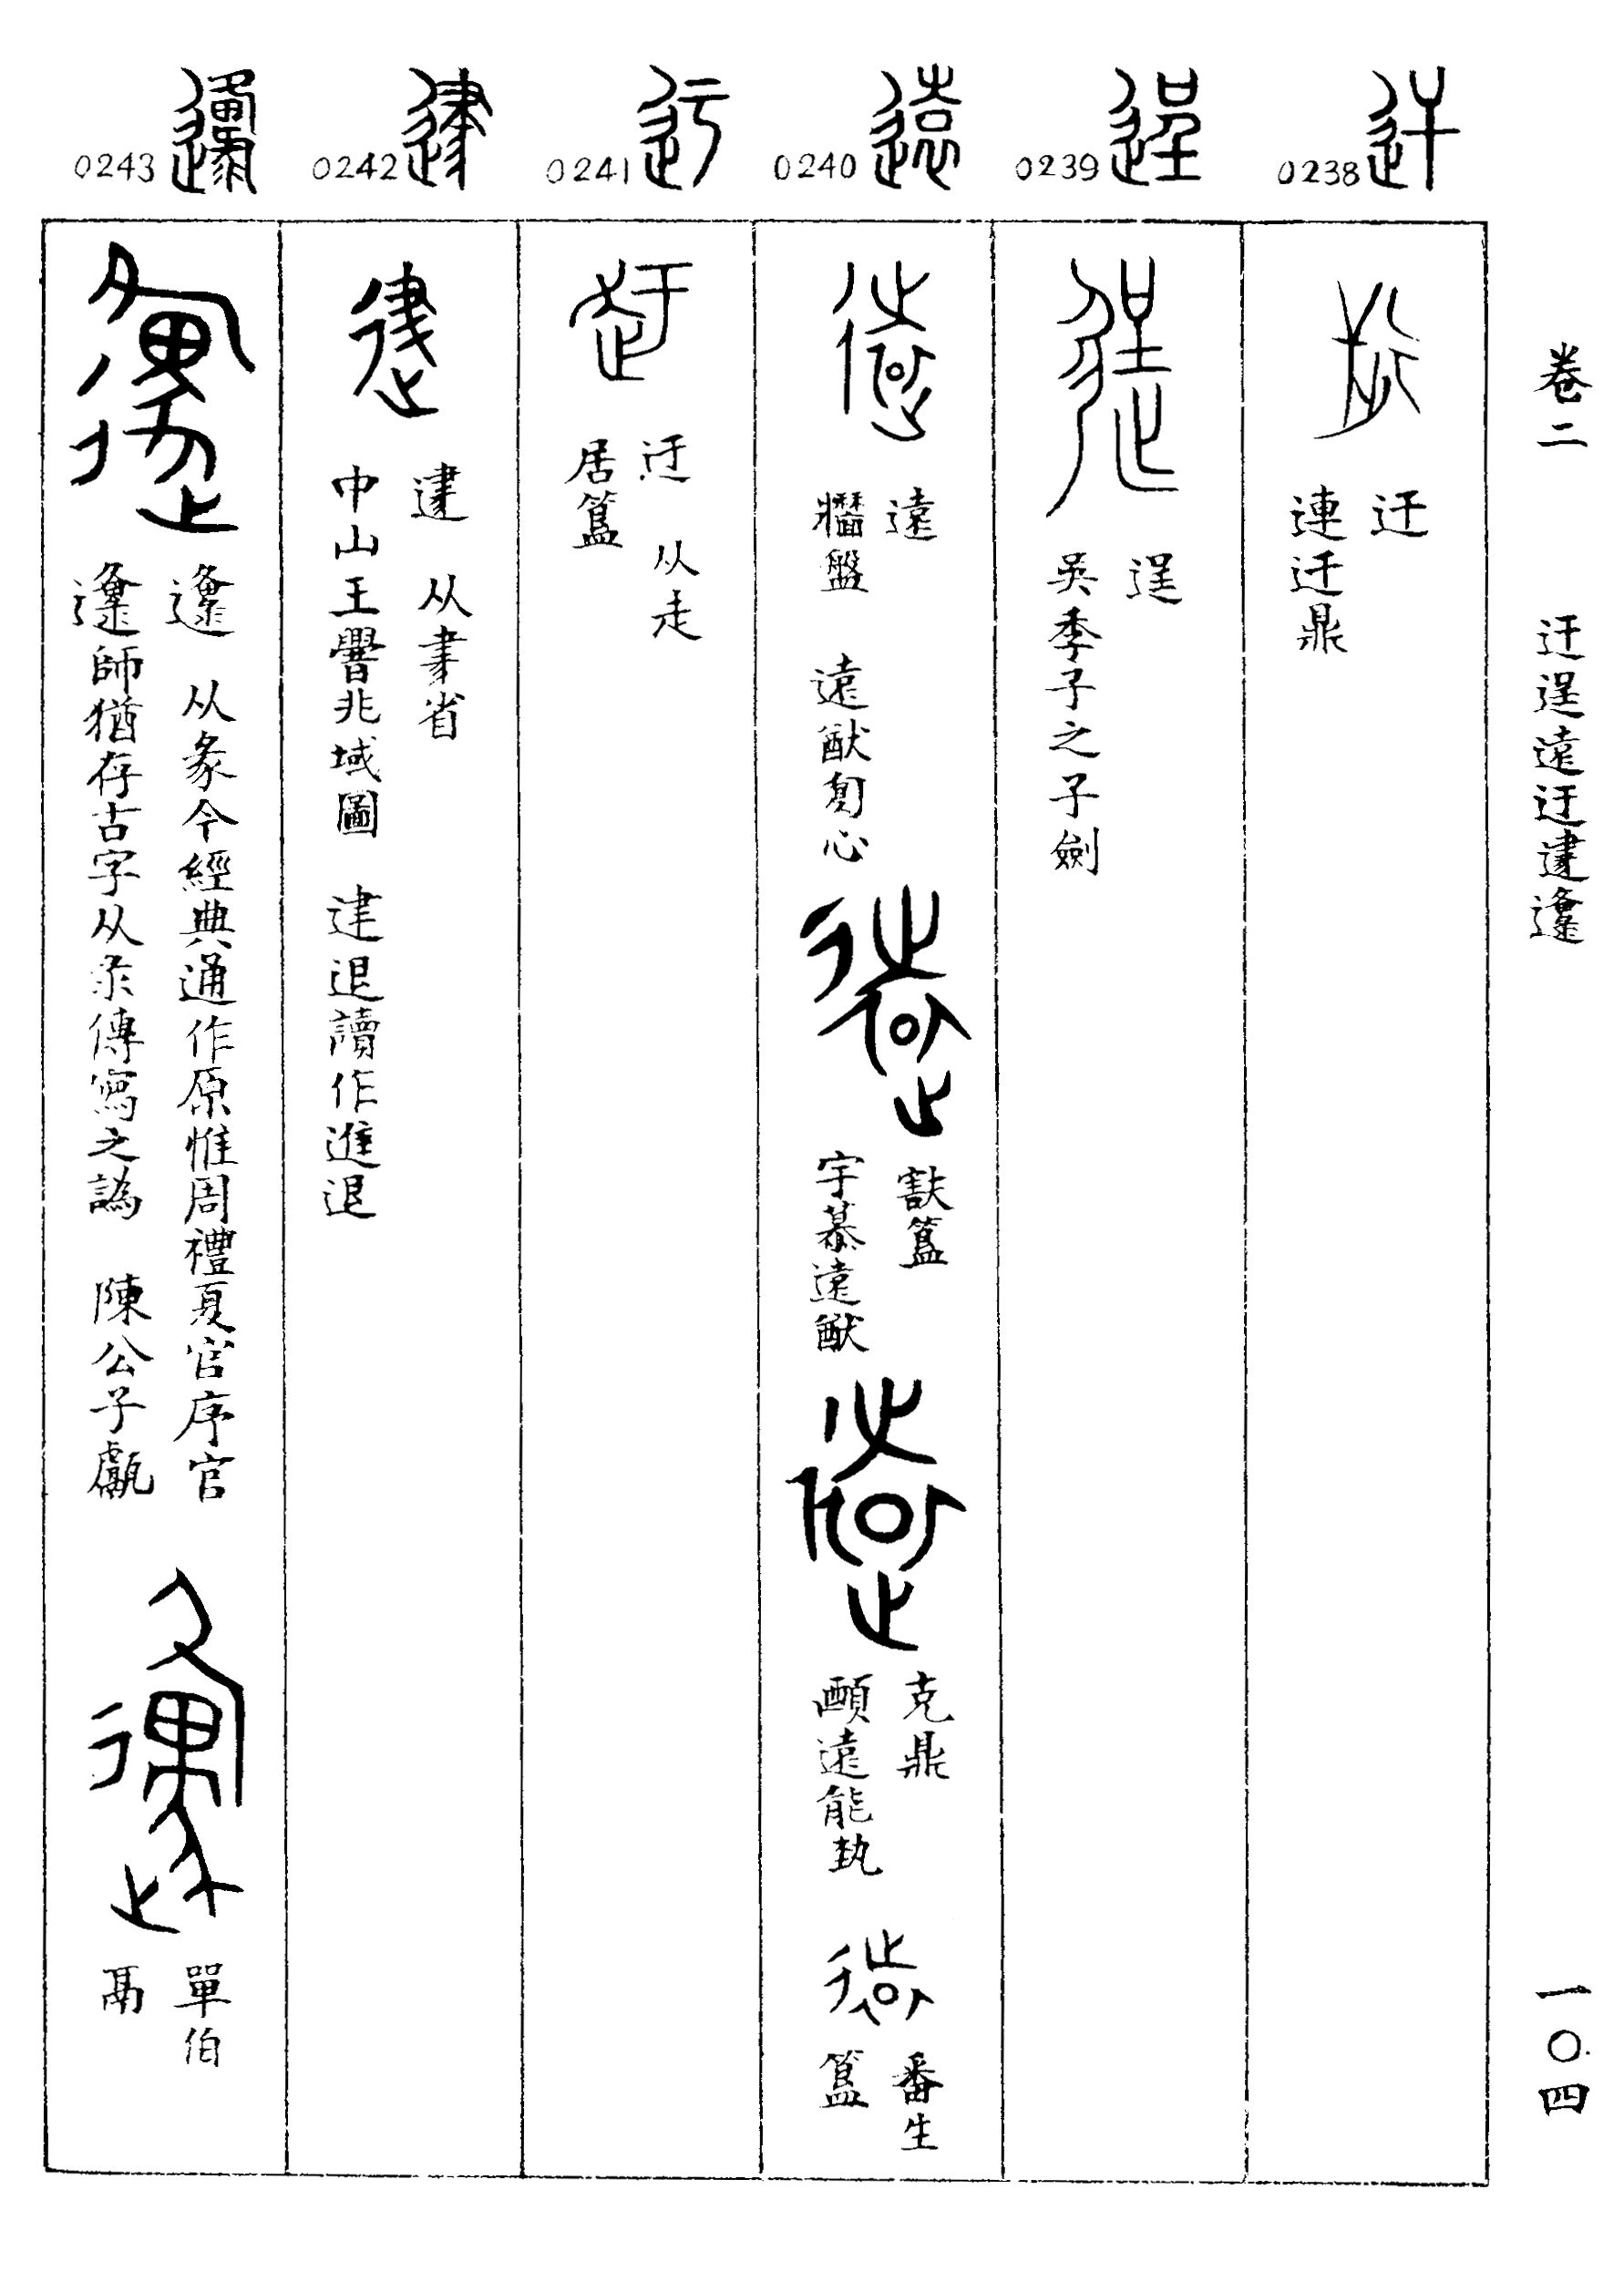 卷二 迀逞遠迂𨗔邍 一〇四
0238
迀
連迀鼎
0239
逞
吳季子之子劍
0240
遠
牆盤 遠猷匋心
㝬簋
宇慕遠猷
克鼎
遠能埶
番生
簋
0241
迂 从走
居簋
0242
从聿省
中山王兆域圖 退讀作進退
0243
邍 从彖今經典通作原惟周禮夏官序官
邍師猶存古字从傳寫之譌 陳公子甗
單伯
鬲